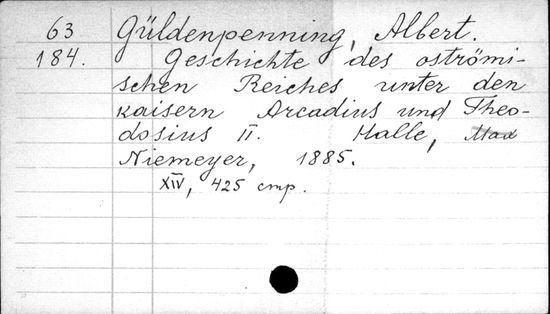 63 Güldenpenning, Albert.
184. Geschichte des oströmi-
schen Reiches unter den
Kaisern Arcadius und Theo-
dosius II. Halle, Max
Niemeyer, 1885.
XIV, 425 стр.